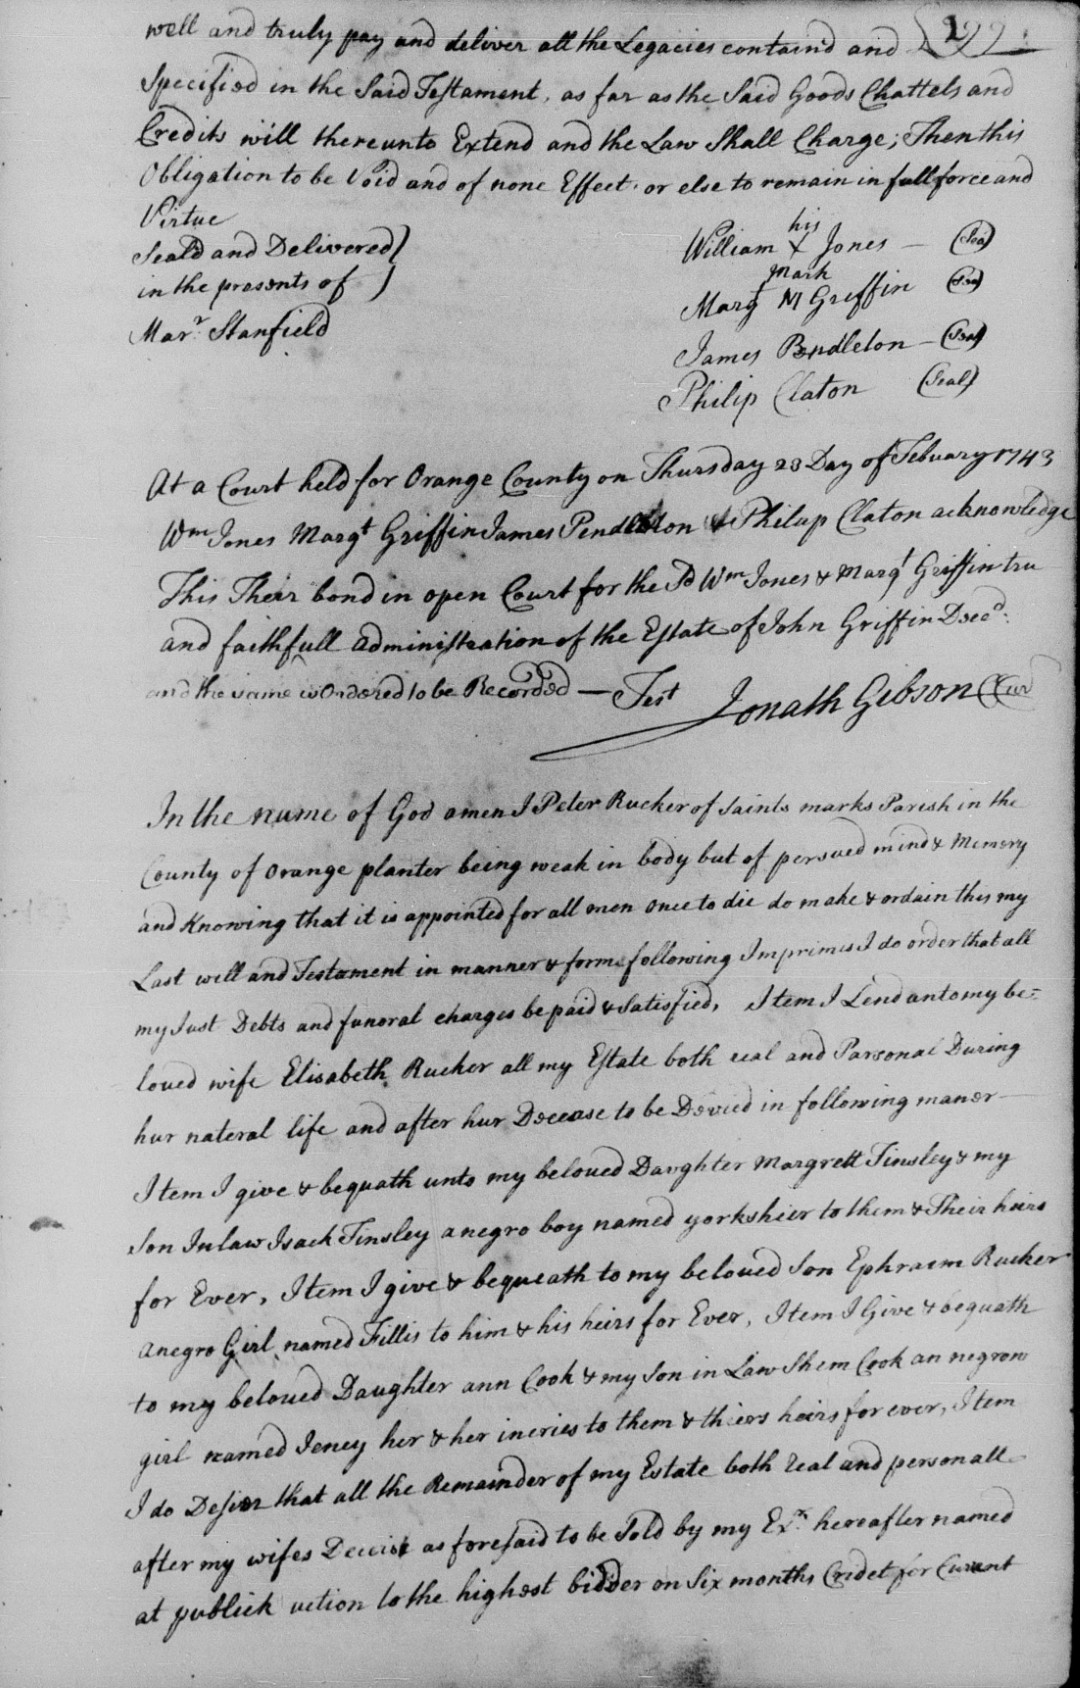 well and truly pay and deliver all the Legacies containd and
Specified in the Said Testament, as far as the Said Goods Chattels and
Credits will thereunto Extend and the Law Shall Charge; Then this
Obligation to be Void and of none Effect or else to remain in full force and
Virtue
Seal'd and Delivered)
in the presents of )
Marr. Stanfield
his
William X Jones — (Seal)
mark
Margt M Griffin (Seal)
James Pendleton — (Seal)
Philip Claton (Seal)
At a Court held for Orange County on Thursday 23 Day of Febuary 1743
Wm Jones Margt Griffin James Pendleton & Philup Claton acknowledge
This Their bond in open Court for the Sd Wm Jones & Margt Griffin tru
and faithfull administration of the Estate of John Griffin Deced:
and the same is Ordered to be Recorded — Test Jonath Gibson CCur
In the name of God amen I Peter Rucker of Saints marks Parish in the
County of Orange planter being weak in body but of persued mind & Memory
and Knowing that it is appointed for all men once to die do make & ordain this my
Last will and Testament in manner & forme following Imprimis I do order that all
my Just Debts and funoral charges be paid & Satisfied, Item I Lend unto my be=
loved wife Elisabeth Rucker all my Estate both real and Parsonal During
hur nateral life and after hur Decease to be Devied in following maner
Item I give & bequath unto my beloved Daughter Margrett Tinsley & my
Son Inlaw Isack Tinsley a negro boy named yorkshier to them & Their heirs
for Ever, Item I give & bequeath to my beloved Son Ephraim Rucker
a negro Girl named Fillis to him & his heirs for Ever, Item I Give & bequath
to my beloved Daughter ann Cook & my Son in Law Shem Cook an negrow
girl named Jeney her & her incries to them & thiers heirs for ever, Item
I do Desier that all the Remainder of my Estate both real and personall
after my wifes Decist as foresaid to be Sold by my Exr. hereafter named
at publick uction to the highest bidder on Six months Credet for Curent